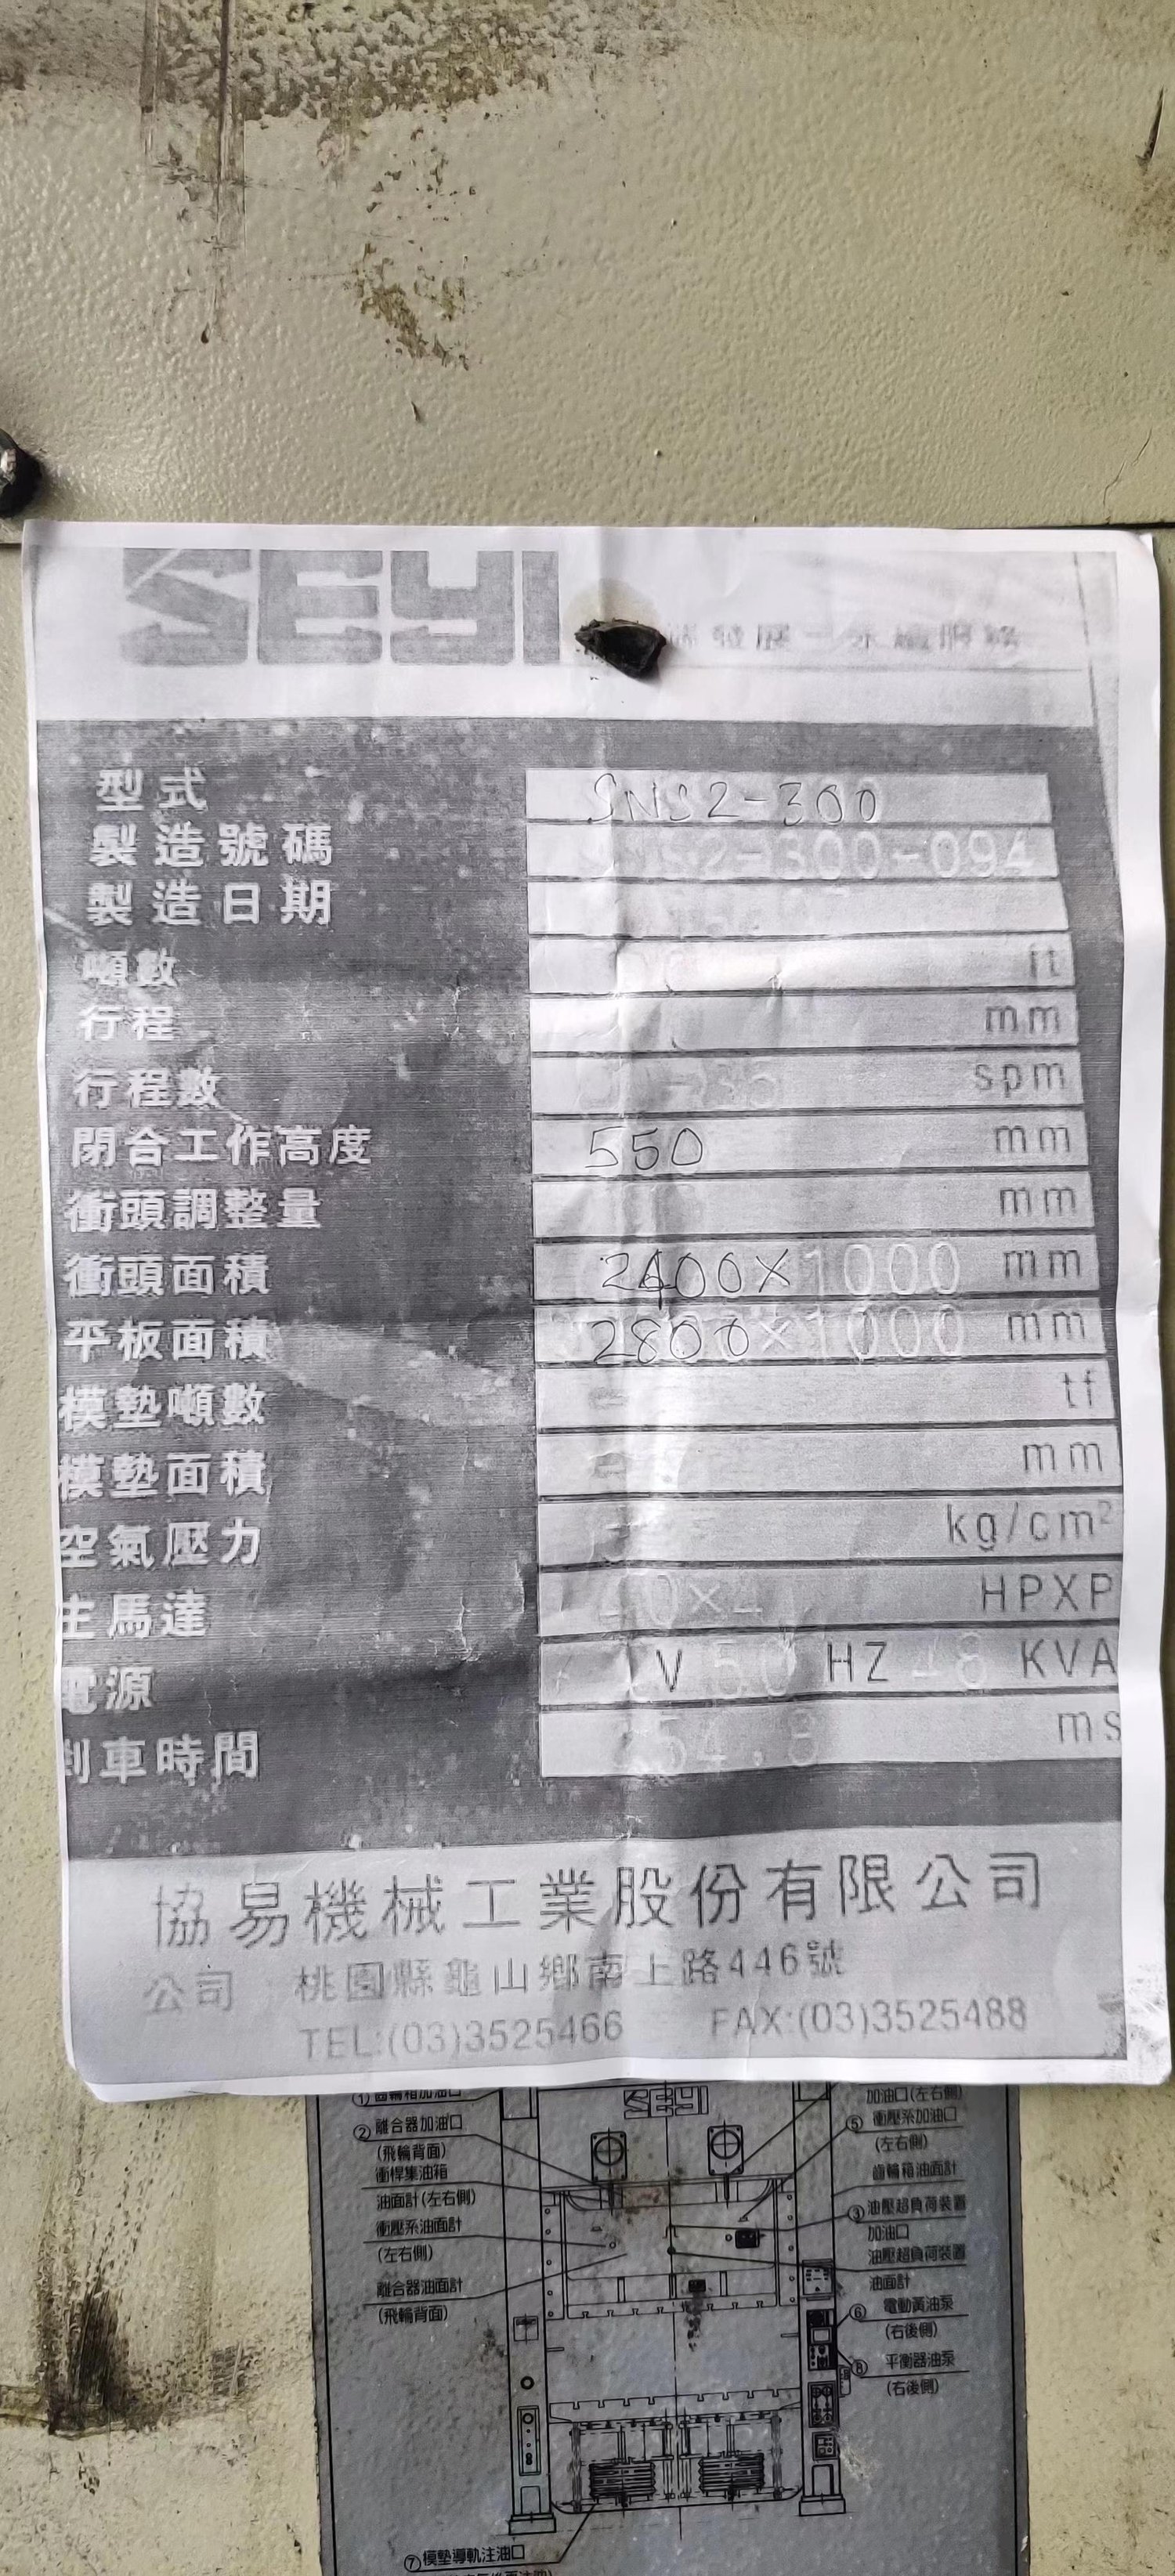 SEYI
型式 SNS2-300
製造號碼 SNS2-300-094
製造日期
噸數 ft
行程 mm
行程數 -35 spm
閉合工作高度 550 mm
衝頭調整量 mm
衝頭面積 2400×1000 mm
平板面積 2800×1000 mm
模墊噸數 - tf
模墊面積 - mm
空氣壓力 kg/cm²
主馬達 40×4 HPXP
電源 V 50 HZ 48 KVA
刹車時間 54.8 ms
協易機械工業股份有限公司
公司 桃園縣龜山鄉南上路446號
TEL:(03)3525466 FAX:(03)3525488
SEYI
①齒輪箱加油口
②離合器加油口
(飛輪背面)
衝桿集油箱
油面計(左右側)
衝壓系油面計
(左右側)
離合器油面計
(飛輪背面)
加油口(左右側)
⑤衝壓系加油口
(左右側)
齒輪箱油面計
③油壓超負荷裝置
加油口
油壓超負荷裝置
油面計
⑥電動黃油泵
(右後側)
⑧平衡器油泵
(右後側)
⑦模墊導軌注油口